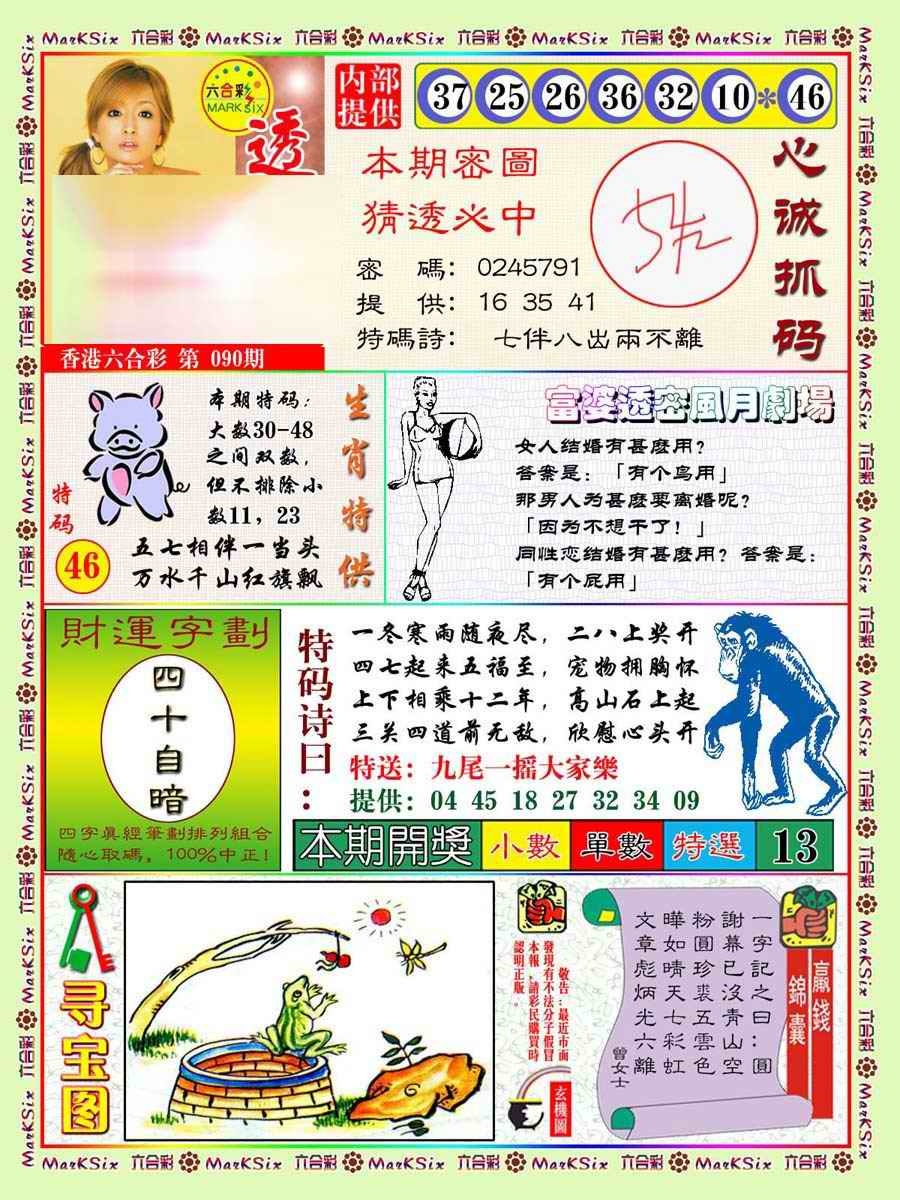 MarKSix 六合彩 MarKSix 六合彩 MarKSix 六合彩 MarKSix 六合彩 MarKSix 六合彩
六合彩
MARK SIX
透
内部
提供
37 25 26 36 32 10 * 46
本期密圖
猜透必中
密 碼: 0245791
提 供: 16 35 41
特碼詩: 七伴八出兩不離
心诚抓码
香港六合彩 第 090期
特码
46
本期特码:
大数30-48
之间双数,
但不排除小
数11, 23
五七相伴一当头
万水千山红旗飘
生肖特供
富婆透密風月劇場
女人结婚有甚麽用?
答案是: 「有个鸟用」
那男人为甚麽要离婚呢?
「因为不想干了! 」
同性恋结婚有甚麽用? 答案是:
「有个屁用」
財運字劃
四十自暗
四字眞經筆劃排列組合
隨心取碼, 100%中正!
特码诗曰:
一冬寒雨随夜尽, 二八上奖开
四七起来五福至, 宠物拥胸怀
上下相乘十二年, 高山石上起
三关四道前无敌, 欣慰心头开
特送: 九尾一摇大家樂
提供: 04 45 18 27 32 34 09
本期開獎 小數 單數 特選 13
寻宝图
敬告:最近市面
發現有不法分子假冒
本報,請彩民購買時
認明正版。
玄機圖
贏錢
錦囊
一字記之曰:圓
謝幕已沒青山空
粉圓珍裘五雲色
曄如晴天七彩虹
文章彪炳光六離
曾女士
MarKSix 六合彩 MarKSix 六合彩 MarKSix 六合彩 MarKSix 六合彩 MarKSix 六合彩